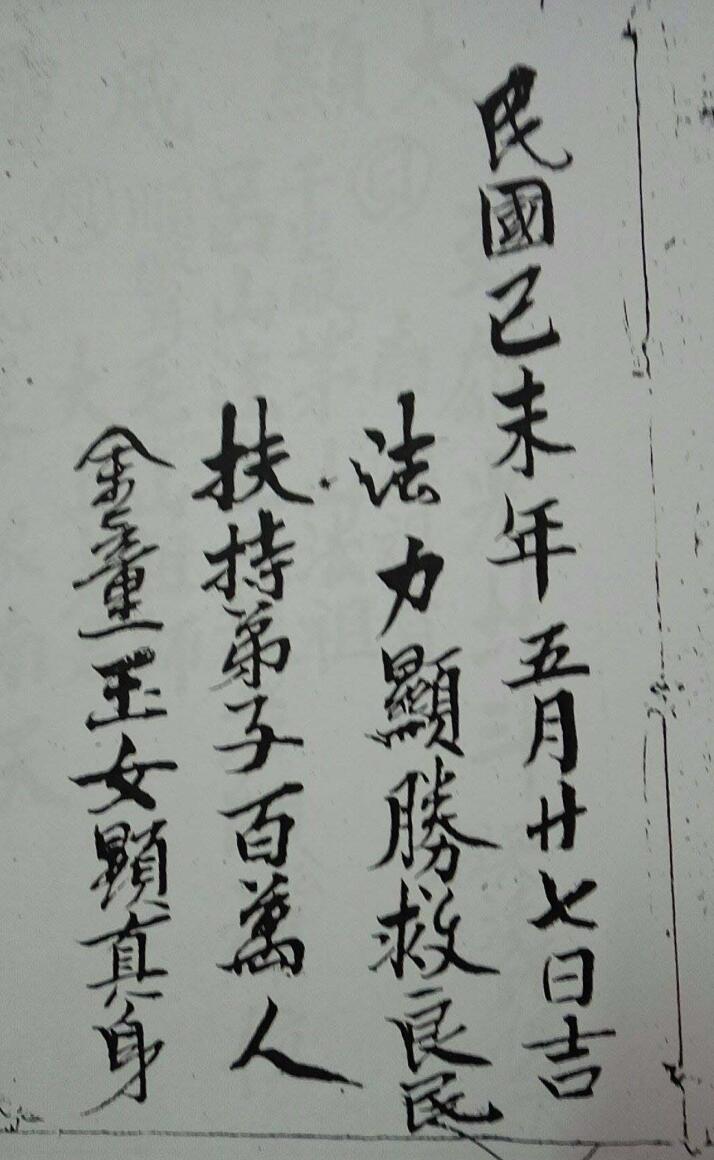 民國己未年五月廿七日吉
法力顯勝救良民
扶持弟子百萬人
金童玉女顕真身